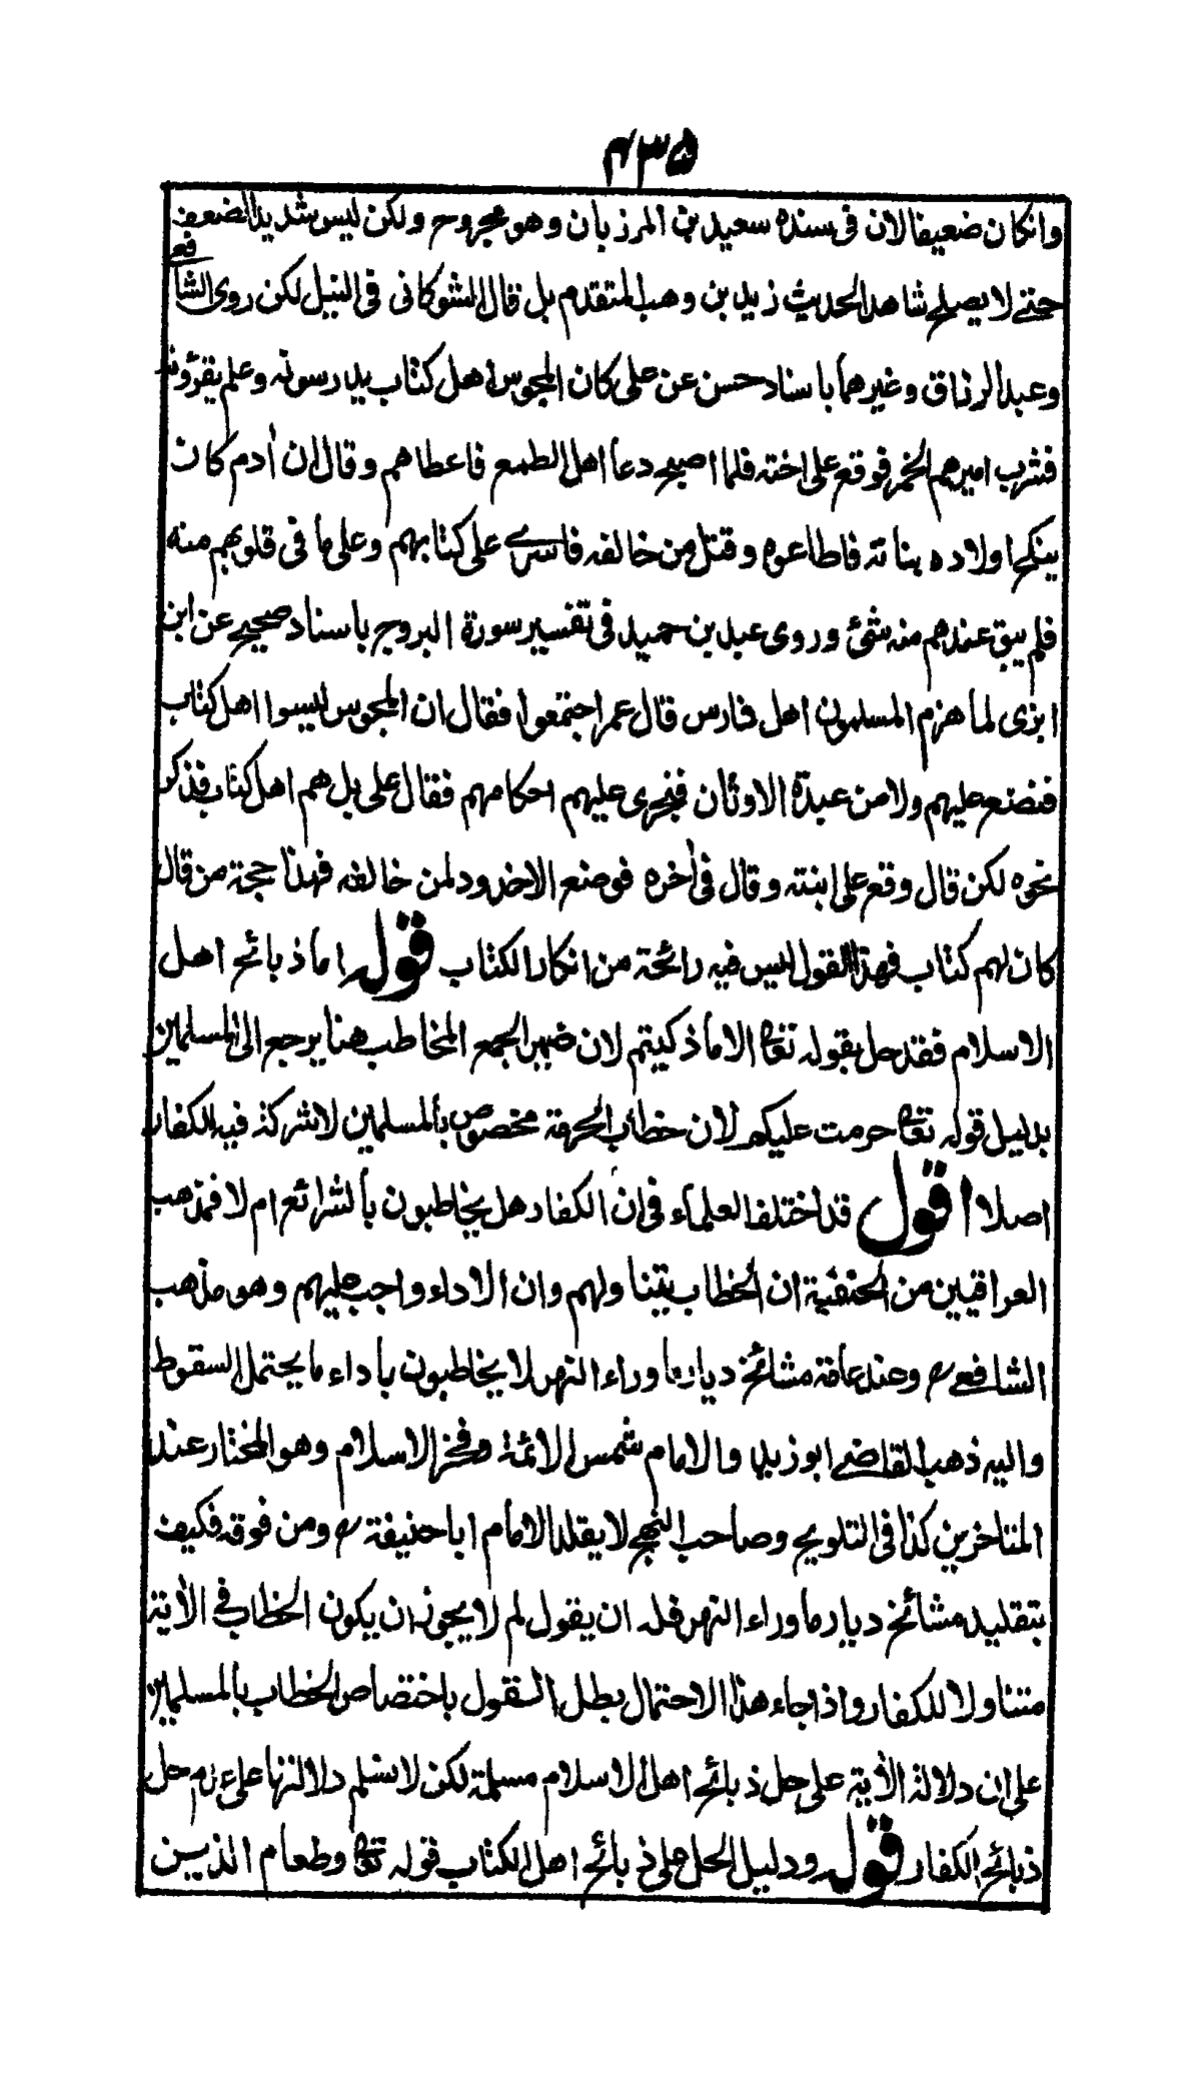 ۴۳۵
وانكان ضعيفا لان فى سنده سعيد بن المرزبان وهو مجروح ولكن ليس شديد الضعف
حتے لا يصلح شاهدا لحديث زيد بن وهب المتقدم بل قال الشوكانى فى النيل لكن روى الشافعے
وعبد الرزاق وغيرهما باسناد حسن عن على كان المجوس اهل كتاب يدرسونه وعلم يقرؤنه
فشرب اميرهم الخمر فوقع على اخته فلما اصبح دعا اهل الطمع فاعطاهم وقال ان أدم كان
ينكح اولاده بناته فاطاعوه وقتل من خالفه فاسرے على كتابهم وعلى ما فى قلوبهم منه
فلم يبق عندهم منه شئ وروى عبد بن حميد فى تفسير سورة البروج باسناد صحيح عن ابن
ابزى لما هزم المسلمون اهل فارس قال عمر اجتمعوا فقال ان المجوس ليسوا اهل كتاب
فنضع عليهم ولا من عبدة الاوثان فنجرى عليهم احكامهم فقال على بل هم اهل كتاب فذكر
نحوه لكن قال وقع على ابنته وقال فى أخره فوضع الاخدود لمن خالفه فهذا حجة من قال
كان لهم كتاب فهذا القول ليس فيه رائحة من انكار الكتاب قوله اما ذبائح اهل
الاسلام فقد حل بقوله تعالى الا ما ذكيتم لان ضمير الجمع المخاطب هنا يرجع الى المسلمين
بدليل قوله تعالى حرمت عليكم لان خطاب الحرمة مخصوص بالمسلمين لا شركة فيه للكفار
اصلا اقول قد اختلف العلماء فى ان الكفار هل يخاطبون بالشرائع ام لا فمذهب
العراقيين من الحنفية ان الخطاب يتناولهم وان الاداء واجب عليهم وهو مذهب
الشافعے رح وعند عامة مشائخ ديار ما وراء النهر لا يخاطبون باداء ما يحتمل السقوط
واليه ذهب القاضے ابو زيد والامام شمس الائمة وفخر الاسلام وهو المختار عند
المتاخرين كذا فى التلويح وصاحب النهج لا يقلد الامام اباحنيفة رح ومن فوقه فكيف
بتقليد مشائخ ديار ما وراء النهر فله ان يقول لم لا يجوز ان يكون الخطاب فے الأية
متناولا للكفار واذا جاء هذا الاحتمال بطل القول باختصاص الخطاب بالمسلمين
على ان دلالة الأية على حل ذبائح اهل الاسلام مسلمة لكن لا نسلم دلالتها على عدم حل
ذبائح الكفار قوله ودليل الحل على ذبائح اهل الكتاب قوله تعالى وطعام الذين